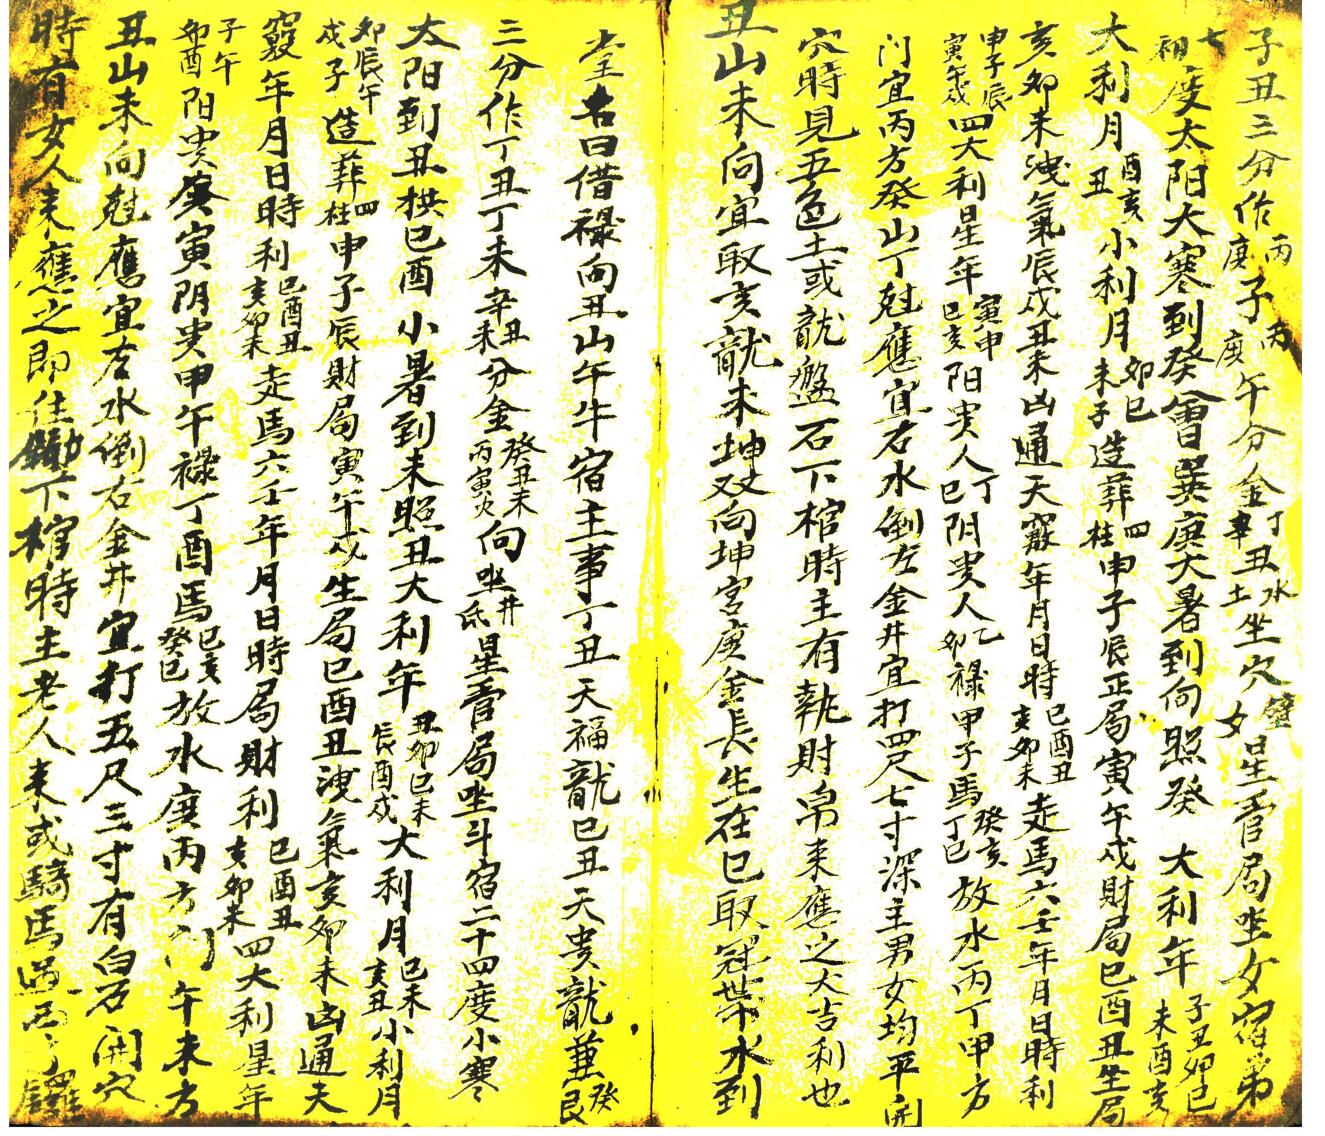 子丑三分作丙庚子丙庚午分金丁辛丑水土坐穴女璧星吞局坐女宿第
七初度太阳大寒到癸會巽庚大暑到向照癸大利年子丑卯巳未酉亥
大利月酉亥丑小利月卯巳未子造葬四柱申子辰正局寅午戌財局巳酉丑生局
亥卯未洩氣辰戌丑未凶通天竅年月日時巳酉丑亥卯未走馬六壬年月日時利
申子辰寅午戌四大利星年寅申巳亥阳贵人丁巳阴贵人乙卯禄甲子馬癸亥丁巳放水丙丁甲方
门宜丙方癸山丁尅應宜右水倒左金井宜打四尺七寸深主男女均平開
穴時見五色土或龍盤石下棺時主有執財帛来應之大吉利也
丑山未向宜取亥龍未坤双向坤宮庚金長生在巳取冠带水到
堂名曰借禄向丑山午牛宿主事丁丑天福龍巳丑天贵龍兼癸艮
三分作丁丑丁未辛丑未分金癸丑未丙寅火向坐井氐星吞局坐斗宿二十四度小寒
太阳到丑拱巳酉小暑到未照丑大利年丑卯巳未辰酉戌大利月巳未亥丑小利月
卯辰午戌子造葬四柱申子辰財局寅午戌生局巳酉丑洩氣亥卯未凶通天
竅年月日時利巳酉丑亥卯未走馬六壬年月日時局財利巳酉丑亥卯未四大利星年
子午卯酉阳贵庚寅阴贵甲午禄丁酉馬巳亥癸巳放水庚丙方门午未方
丑山未向尅應宜左水倒右金井宜打五尺三寸有白石開穴
時有女人来應之即佳 下棺時主老人来或騎馬過